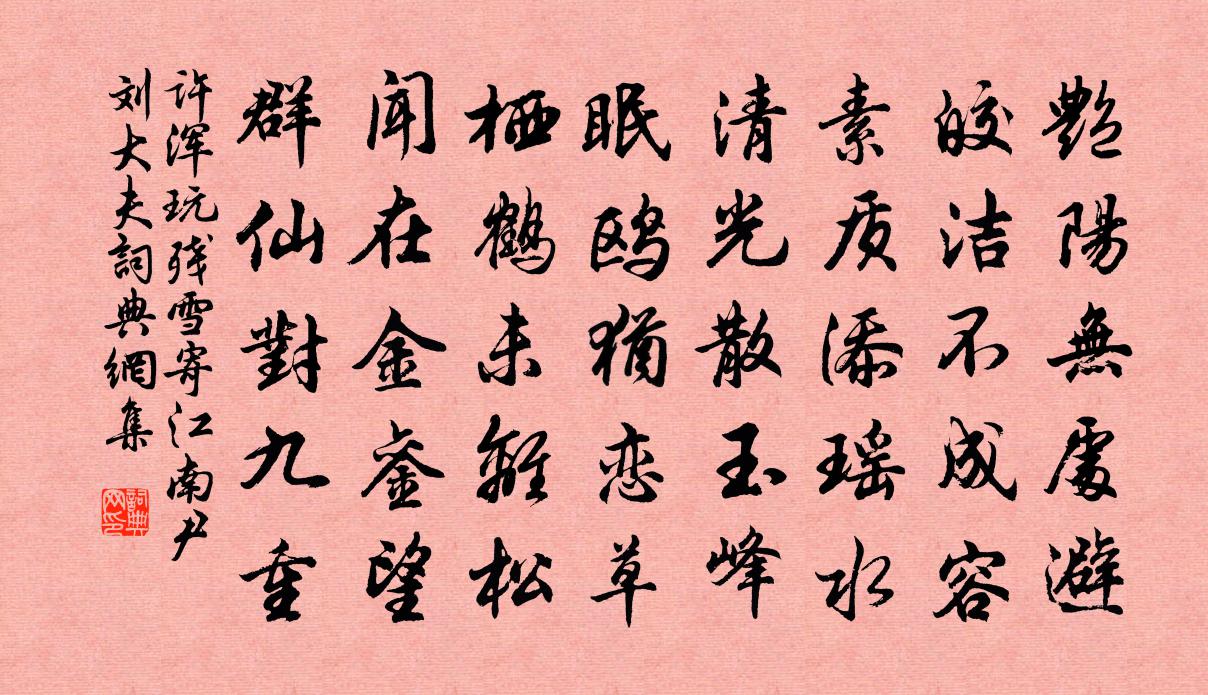 艷陽無處避
皎洁不成容
素质添瑶水
清光散玉峰
眠鸥犹恋草
栖鶴未離松
闻在金銮望
群仙對九重
许浑玩残雪寄江南尹
刘大夫詞典網集
詞典网印